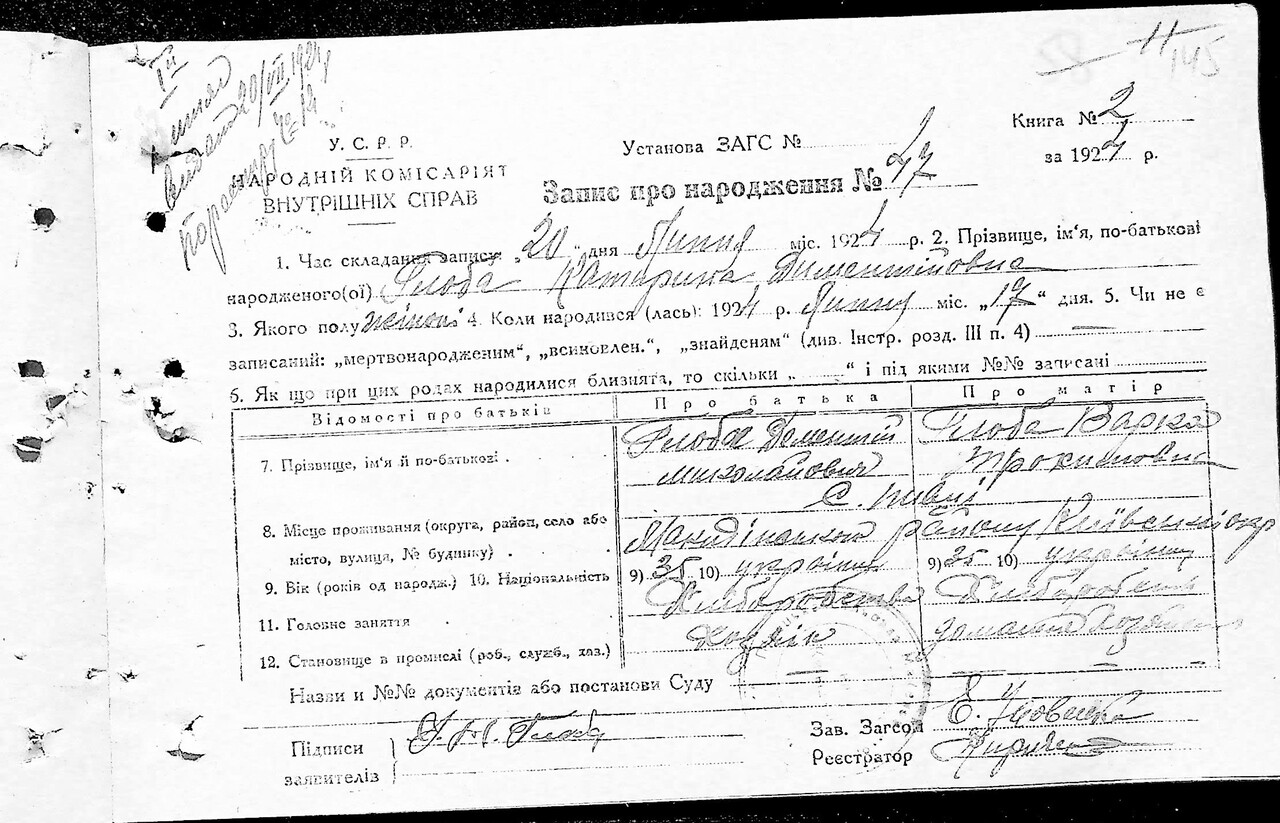 145
Книга № 2
за 1924 р.
У. С. Р. Р.
НАРОДНІЙ КОМІСАРІЯТ
ВНУТРІШНІХ СПРАВ
Установа ЗАГС №
Запис про народження № 47
1. Час складання запису „20“ дня Липня міс. 1924 р. 2. Прізвище, ім'я, по-батькові
народженого(ої) Глоба Катерина Дементійовна
3. Якого полу жіночої 4. Коли народився (лась): 1924 р. Липня міс. „17“ дня. 5. Чи не є
записаний: „мертвонародженим“, „всиновлен.“, „знайденям“ (див. Інстр. розд. III п. 4) —
6. Як що при цих родах народилися близнята, то скільки „ “ і під якими №№ записані
Відомості про батьків Про батька Про матір
7. Прізвище, ім'я й по-батькові . Глоба Дементій Глоба Варка
Миколайович
С.
8. Місце проживання (округа, район, село або району Київської окр
місто, вулиця, № будинку) .
9. Вік (років од народж.) 10. Національність 9) 35 10) українець 9) 35 10) українка
11. Головне заняття . Хліборобство Хліборобство
12. Становище в промислі (роб., служб., хаз.) Хазяїн
Назви и №№ документів або постанови Суду — —
Підписи
заявителів
Зав. Загсом
Реєстратор